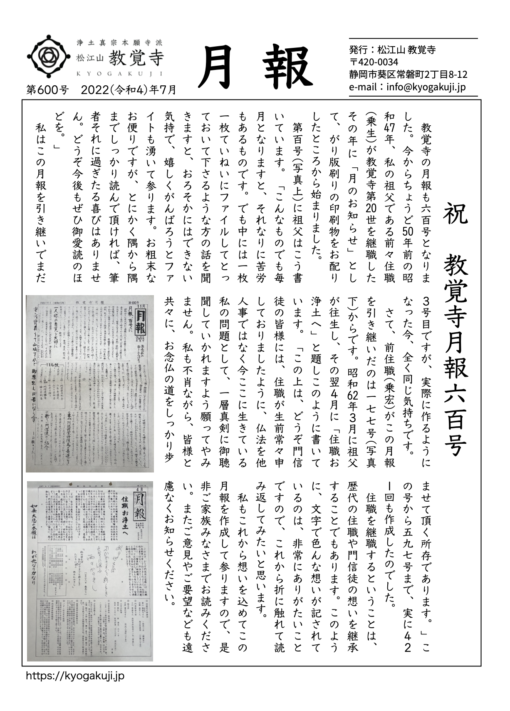 浄土真宗本願寺派
松江山 教覚寺
KYOGAKUJI
第600号　2022(令和4)年7月
月報
発行：松江山 教覚寺
〒420-0034
静岡市葵区常磐町2丁目8-12
e-mail：info@kyogakuji.jp
祝　教覚寺月報六百号
教覚寺の月報も六百号となりま
した。今からちょうど50年前の昭
和47年、私の祖父である前々住職
(乗生)が教覚寺第20世を継職した
その年に「月のお知らせ」とし
て、がり版刷りの印刷物をお配り
したところから始まりました。
第百号(写真上)に祖父はこう書
いています。「こんなものでも毎
月となりますと、それなりに苦労
もあるものです。でも中には一枚
一枚ていねいにファイルしてとっ
ておいて下さるような方の話を聞
きますと、おろそかにはできない
気持で、嬉しくがんばろうとファ
イトも湧いて参ります。お粗末な
お便りですが、とにかく隅から隅
までしっかり読んで頂ければ、筆
者それに過ぎたる喜びはありませ
ん。どうぞ今後もぜひ御愛読のほ
どを。」
私はこの月報を引き継いでまだ
3号目ですが、実際に作るように
なった今、全く同じ気持ちです。
さて、前住職(乗宏)がこの月報
を引き継いだのは一七七号(写真
下)からです。昭和62年3月に祖父
が往生し、その翌4月に「住職お
浄土へ」と題しこのように書いて
います。「この上は、どうぞ門信
徒の皆様には、住職が生前常々申
しておりましたように、仏法を他
人事ではなく今ここに生きている
私の問題として、一層真剣に御聴
聞していかれますよう願ってやみ
ません。私も不肖ながら、皆様と
共々に、お念仏の道をしっかり歩
ませて頂く所存であります。」こ
の号から五九七号まで、実に42
1回も作成したのでした。
住職を継職するということは、
歴代の住職や門信徒の想いを継承
することでもあります。このよう
に、文字で色んな想いが記されて
いるのは、非常にありがたいこと
ですので、これから折に触れて読
み返してみたいと思います。
私もこれから想いを込めてこの
月報を作成して参りますので、是
非ご家族みなさまでお読みくださ
い。またご意見やご要望なども遠
慮なくお知らせください。
月報
月報
住職お浄土へ
https://kyogakuji.jp